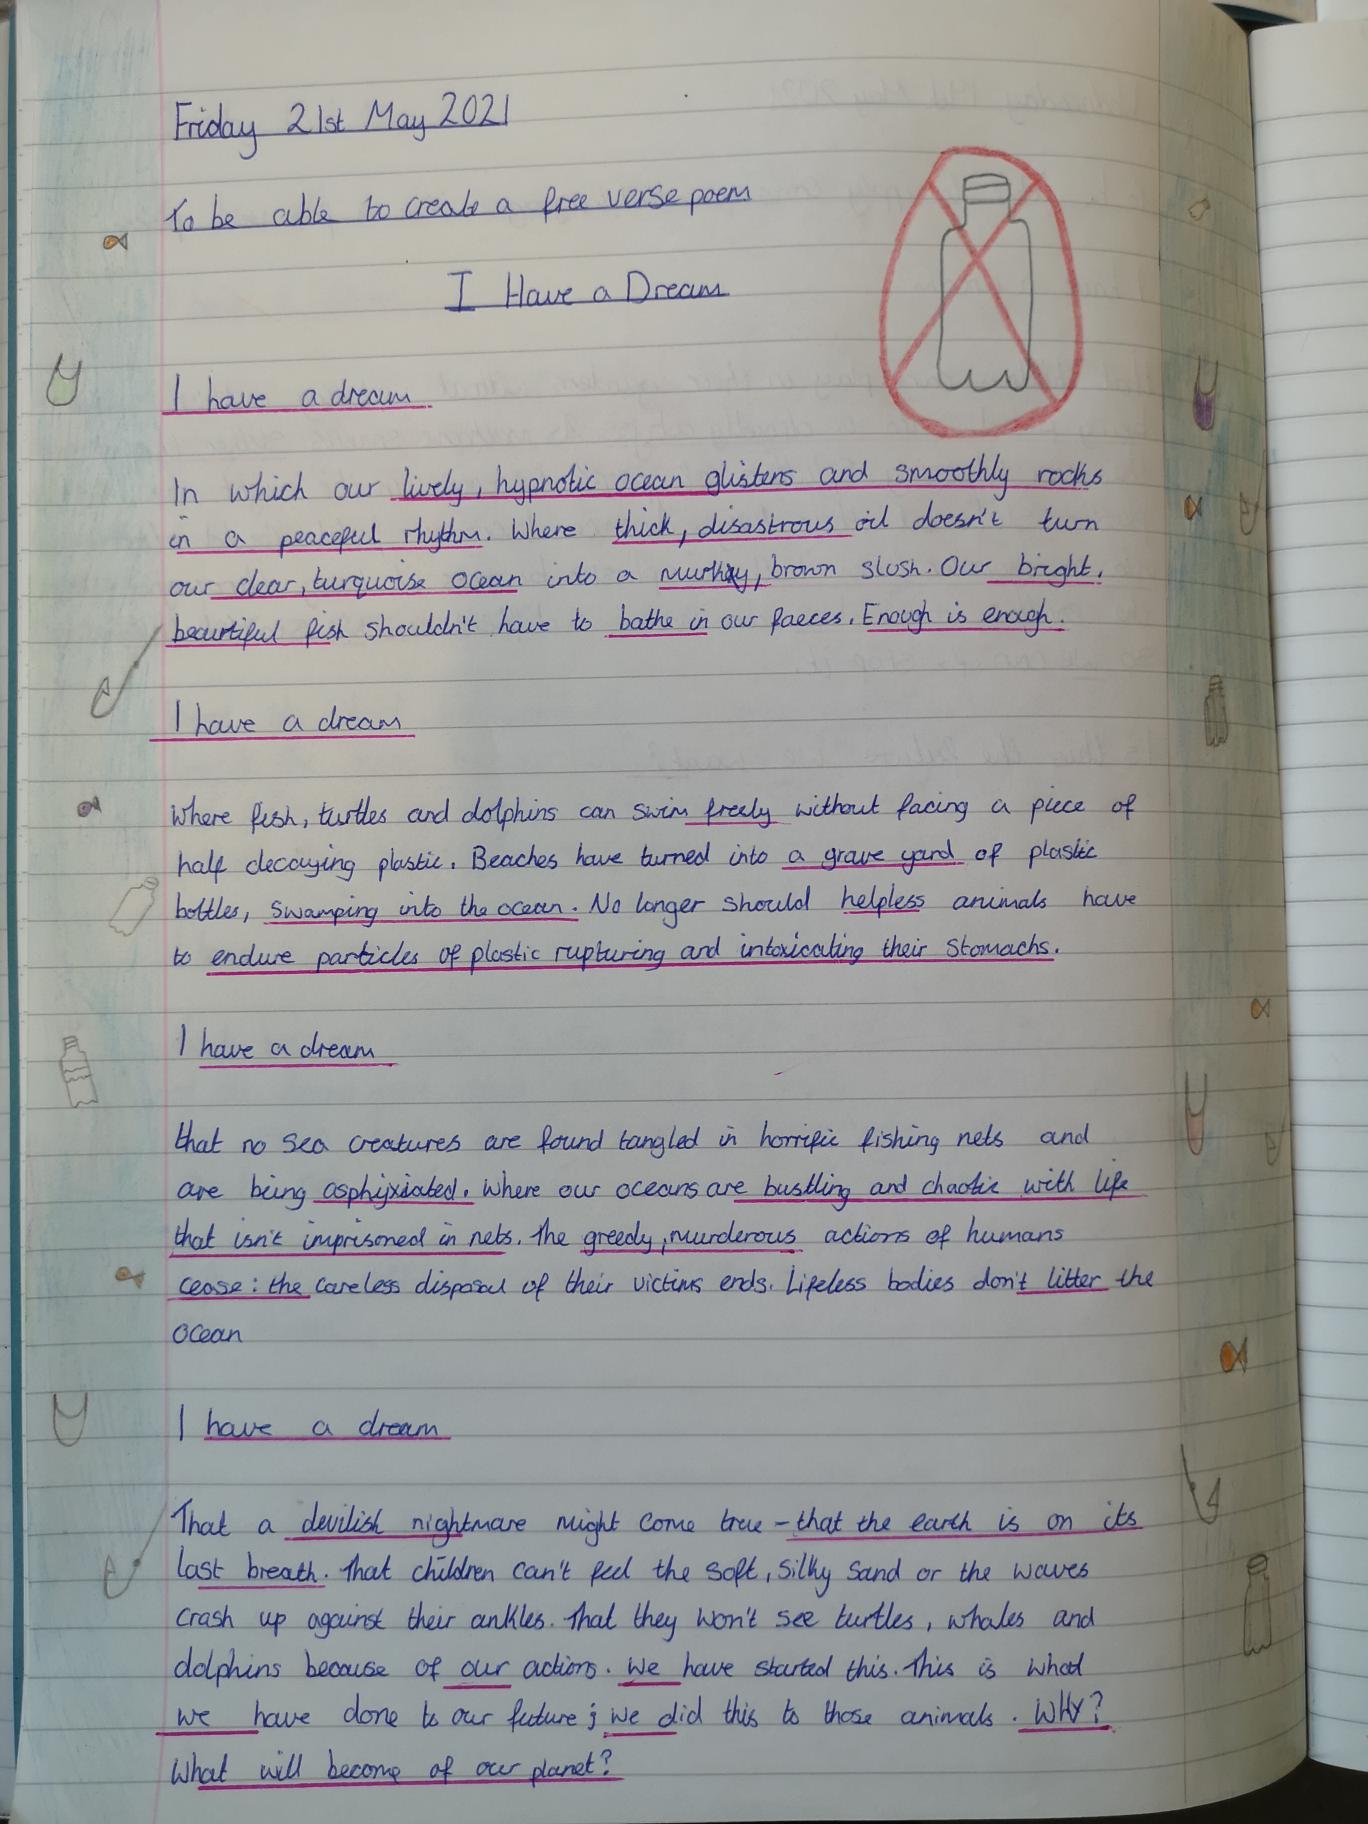 Friday 21st May 2021
To be able to create a free verse poem
I Have a Dream
I have a dream
In which our lively, hypnotic ocean glisters and smoothly rocks
in a peaceful rhythm. Where thick, disastrous oil doesn't turn
our clear, turquoise ocean into a murky, brown slush. Our bright,
beautiful fish shouldn't have to bathe in our faeces. Enough is enough.
I have a dream
Where fish, turtles and dolphins can swim freely without facing a piece of
half decaying plastic. Beaches have turned into a grave yard of plastic
bottles, swamping into the ocean. No longer should helpless animals have
to endure particles of plastic rupturing and intoxicating their stomachs.
I have a dream
that no sea creatures are found tangled in horrific fishing nets and
are being asphyxiated. Where our oceans are bustling and chaotic with life
that isn't imprisoned in nets. The greedy, murderous actions of humans
cease: the careless disposal of their victims ends. Lifeless bodies don't litter the
ocean
I have a dream
That a devilish nightmare might come true - that the earth is on its
last breath. That children can't feel the soft, silky sand or the waves
crash up against their ankles. That they won't see turtles, whales and
dolphins because of our actions. We have started this. This is what
we have done to our future; we did this to those animals. WHY?
What will become of our planet?